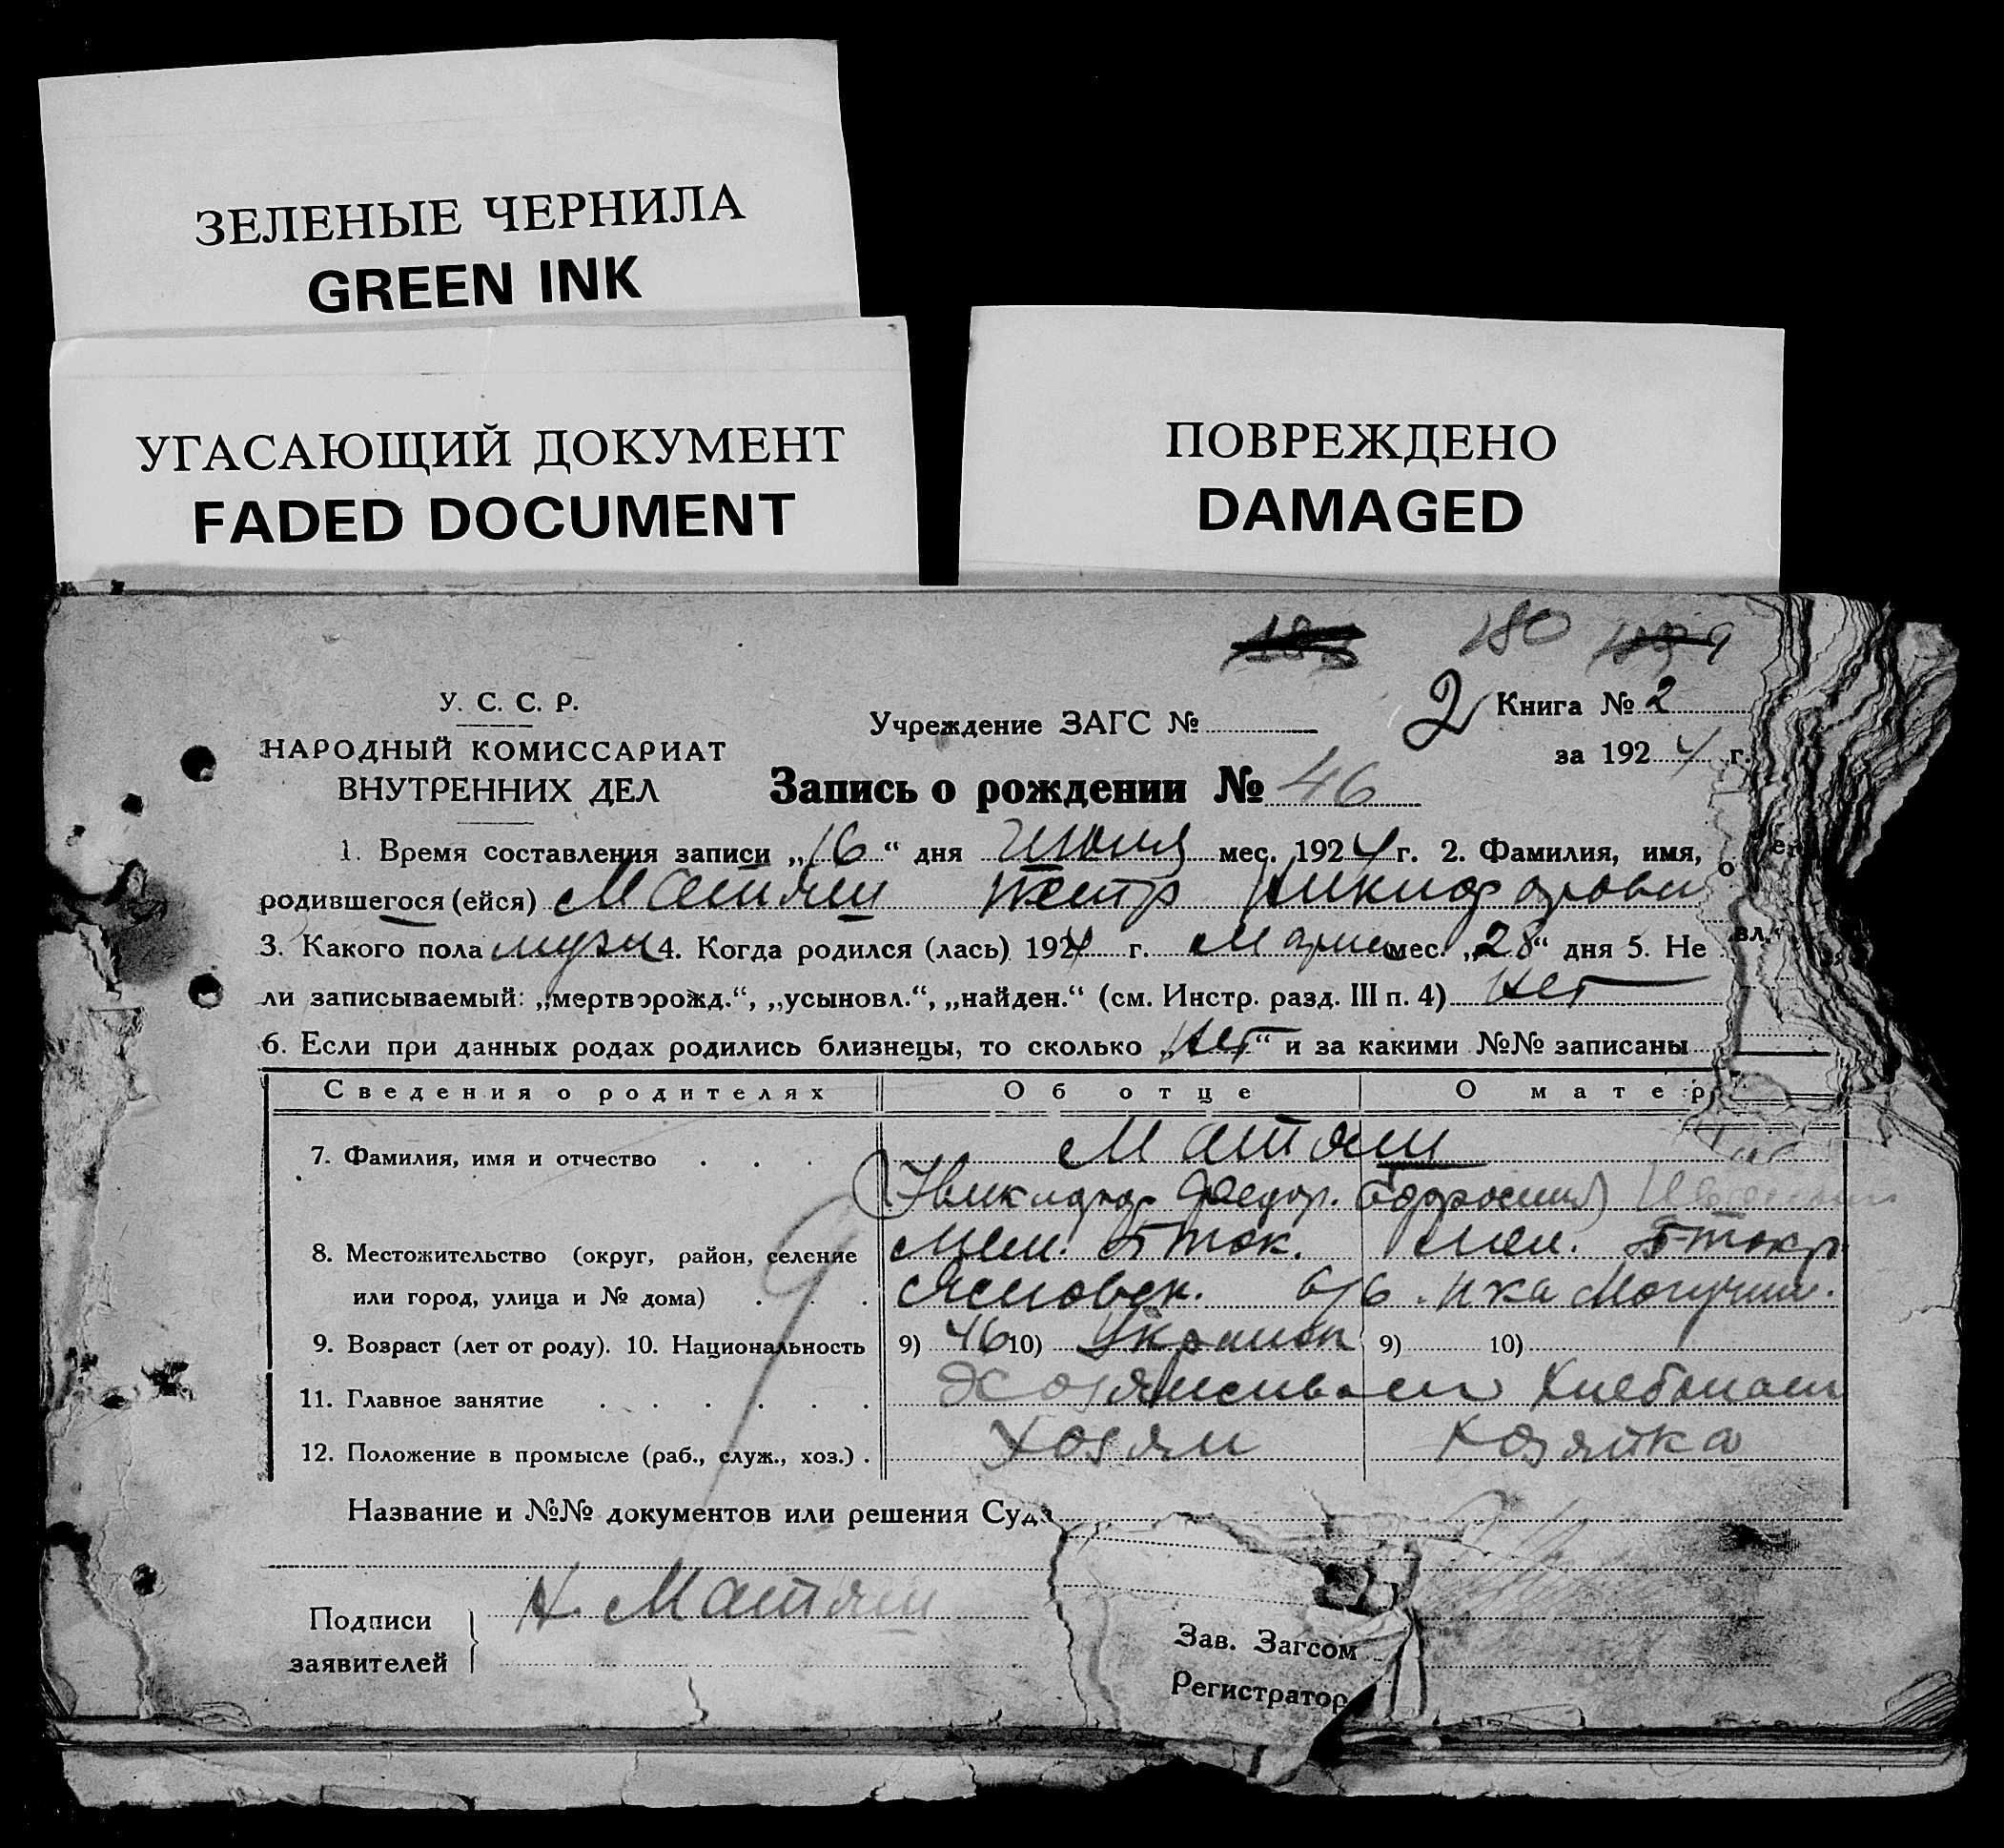 ЗЕЛЕНЫЕ ЧЕРНИЛА
GREEN INK
УГАСАЮЩИЙ ДОКУМЕНТ
FADED DOCUMENT
ПОВРЕЖДЕНО
DAMAGED
180
У. С. С. Р.
НАРОДНЫЙ КОМИССАРИАТ
ВНУТРЕННИХ ДЕЛ
Учреждение ЗАГС №
2 Книга № 2
за 1924 г.
Запись о рождении № 46
1. Время составления записи „16“ дня Июня мес. 1924 г. 2. Фамилия, имя, о
родившегося (ейся) Матяш Петр Никифорови
3. Какого пола муж 4. Когда родился (лась) 1924 г. Марта мес. „28“ дня 5. Не
ли записываемый: „мертворожд.“, „усыновл.“, „найден.“ (см. Инстр. разд. III п. 4) Нет
6. Если при данных родах родились близнецы, то сколько „Нет“ и за какими №№ записаны
Сведения о родителях Об отце О матер
7. Фамилия, имя и отчество Матяш
Никифор Федор.
8. Местожительство (округ, район, селение
или город, улица и № дома)
9. Возраст (лет от роду). 10. Национальность 9) 46 10) Украин 9) 10)
11. Главное занятие
12. Положение в промысле (раб., служ., хоз.) Хозяин Хозяйка
Название и №№ документов или решения Суда
Подписи
заявителей
Н Матяш
Зав. Загсом
Регистратор